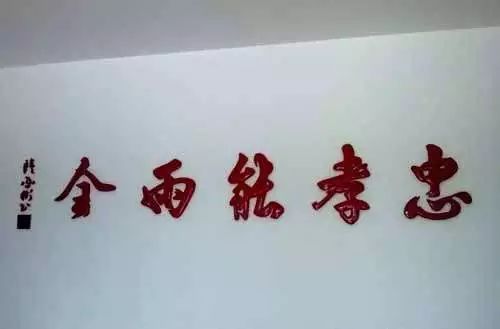 忠孝能雨全